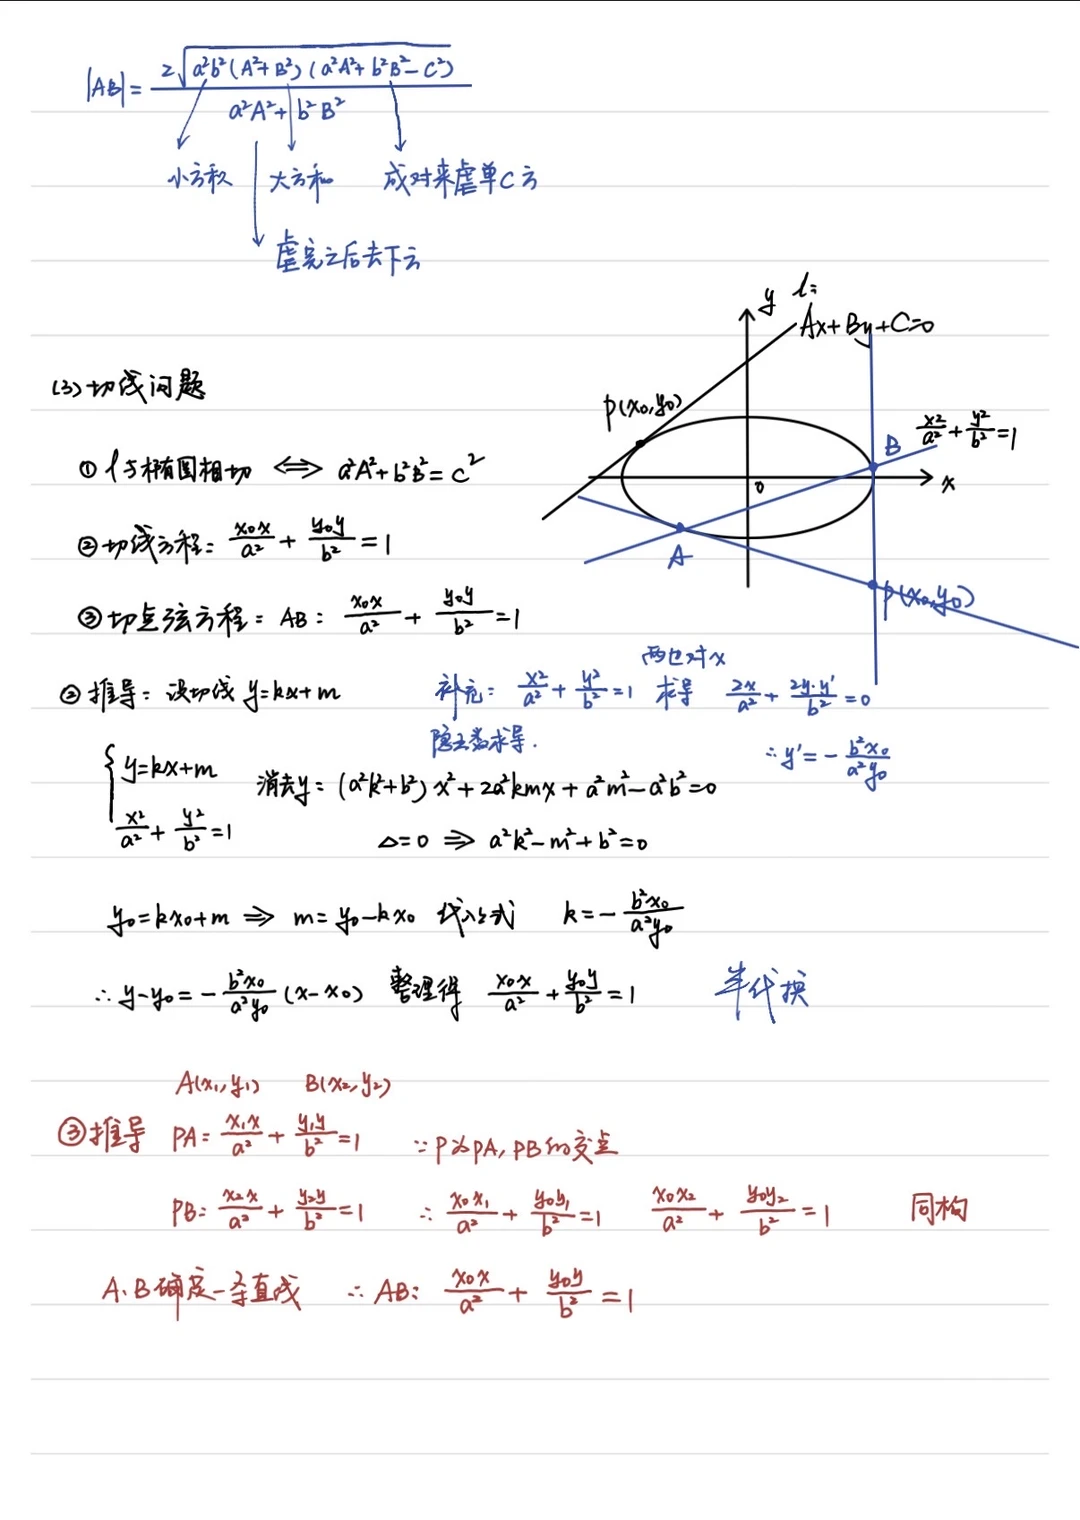 |AB| = 2√(a²b²(A²+B²)(a²A²+b²B²-C²)) / (a²A²+b²B²)
小方积 大方和 成对来虐单C方
虐完之后去下云
y l:
Ax+By+C=0
(3) 切线问题
P(x₀,y₀)
x²/a² + y²/b² = 1
B
① l与椭圆相切 ⟺ a²A²+b²B²=C²
0 x
② 切线方程: x₀x/a² + y₀y/b² = 1
A
P(x₀,y₀)
③ 切点弦方程: AB: x₀x/a² + y₀y/b² = 1
② 推导: 设切线 y=kx+m
补充: x²/a² + y²/b² = 1 两边对x求导 2x/a² + 2y·y'/b² = 0
隐函数求导.
∴ y' = - b²x₀/a²y₀
{ y=kx+m
x²/a² + y²/b² = 1
消去y: (a²k²+b²)x²+2a²kmx+a²m²-a²b²=0
△=0 ⇒ a²k²-m²+b²=0
y₀=kx₀+m ⇒ m=y₀-kx₀ 代入上式 k= - b²x₀/a²y₀
∴ y-y₀= - b²x₀/a²y₀ (x-x₀) 整理得 x₀x/a² + y₀y/b² = 1 半代换
A(x₁,y₁) B(x₂,y₂)
③ 推导 PA: x₁x/a² + y₁y/b² = 1 ∵ P为PA,PB的交点
PB: x₂x/a² + y₂y/b² = 1 ∴ x₀x₁/a² + y₀y₁/b² = 1 x₀x₂/a² + y₀y₂/b² = 1 同构
A、B确定一条直线 ∴ AB: x₀x/a² + y₀y/b² = 1